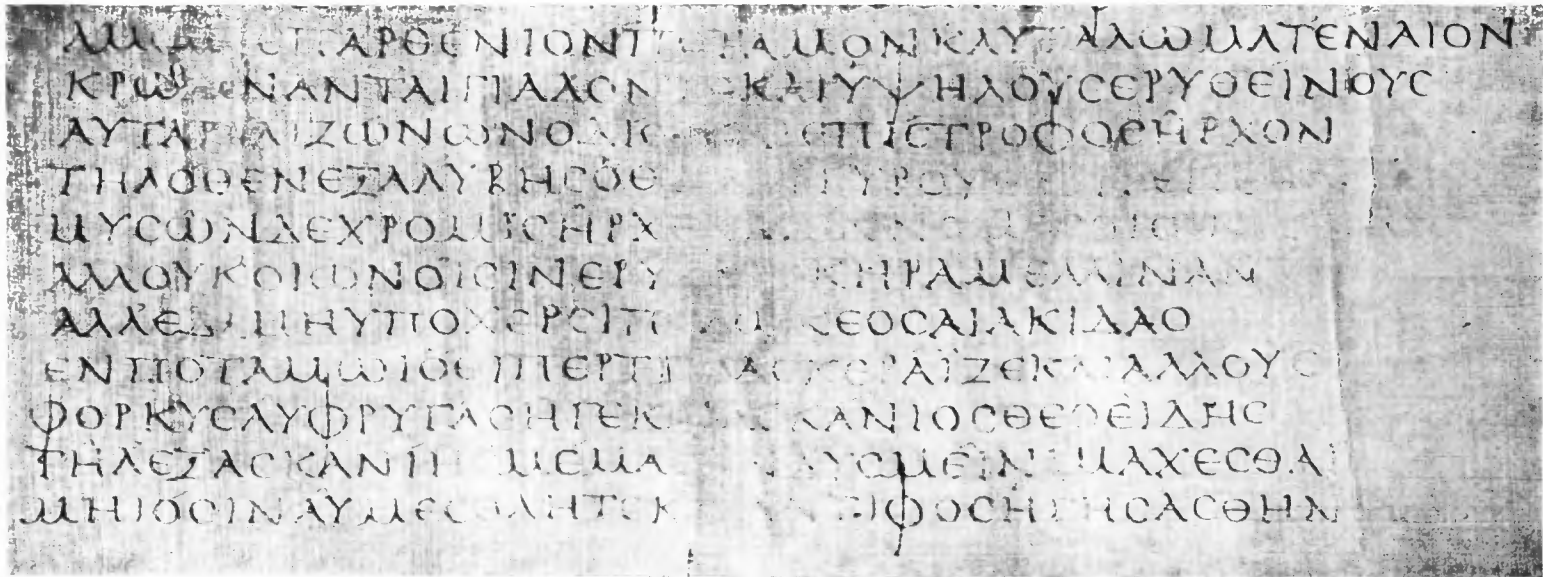 ΠΑΡΘΕΝΙΟΝΠ ΤΑΜΟΝΚΛΥΤΑΔΩΜΑΤΕΝΑΙΟΝ
ΚΡΩ ΝΑΝΤΑΙΓΙΑΛΟΝ ΚΑΙΥΨΗΛΟΥϹΕΡΥΘΕΙΝΟΥϹ
ΑΥΤΑΡ ΛΙΖΩΝΩΝΟΔΙ ΕΠΙϹΤΡΟΦΟϹΗΡΧΟΝ
ΤΗΛΟΘΕΝΕΞΑΛΥΒΗϹΟΘΕ ΓΥΡΟΥ
ΜΥϹΩΝΔΕΧΡΟΜΙϹΗΡΧ
ΑΛΛΟΥΚΟΙΩΝΟΙϹΙΝΕΡΥ ΚΗΡΑΜΕΛΑΙΝΑΝ
ΑΛΛΕΔΑΜΗΥΠΟΧΕΡϹΙΠ ΚΕΟϹΑΙΑΚΙΔΑΟ
ΕΝΠΟΤΑΜΩΙΟΘΙΠΕΡΤ ΑϹΚΕΡΑΪΖΕΚΑΙΑΛΛΟΥϹ
ΦΟΡΚΥϹΑΥΦΡΥΓΑϹΗΓΕΚ ΚΑΝΙΟϹΘΕΟΕΙΔΗϹ
ΤΗΛΕΞΑϹΚΑΝΙΗ ΜΕΜΑ ΥϹΜΕΙΝΙΜΑΧΕϹΘΑΙ
ΜΗΙΟϹΙΝΑΥΜΕϹΘΛΗΤΕΚ ΙΦΟϹΗΓΗϹΑϹΘΗΝ